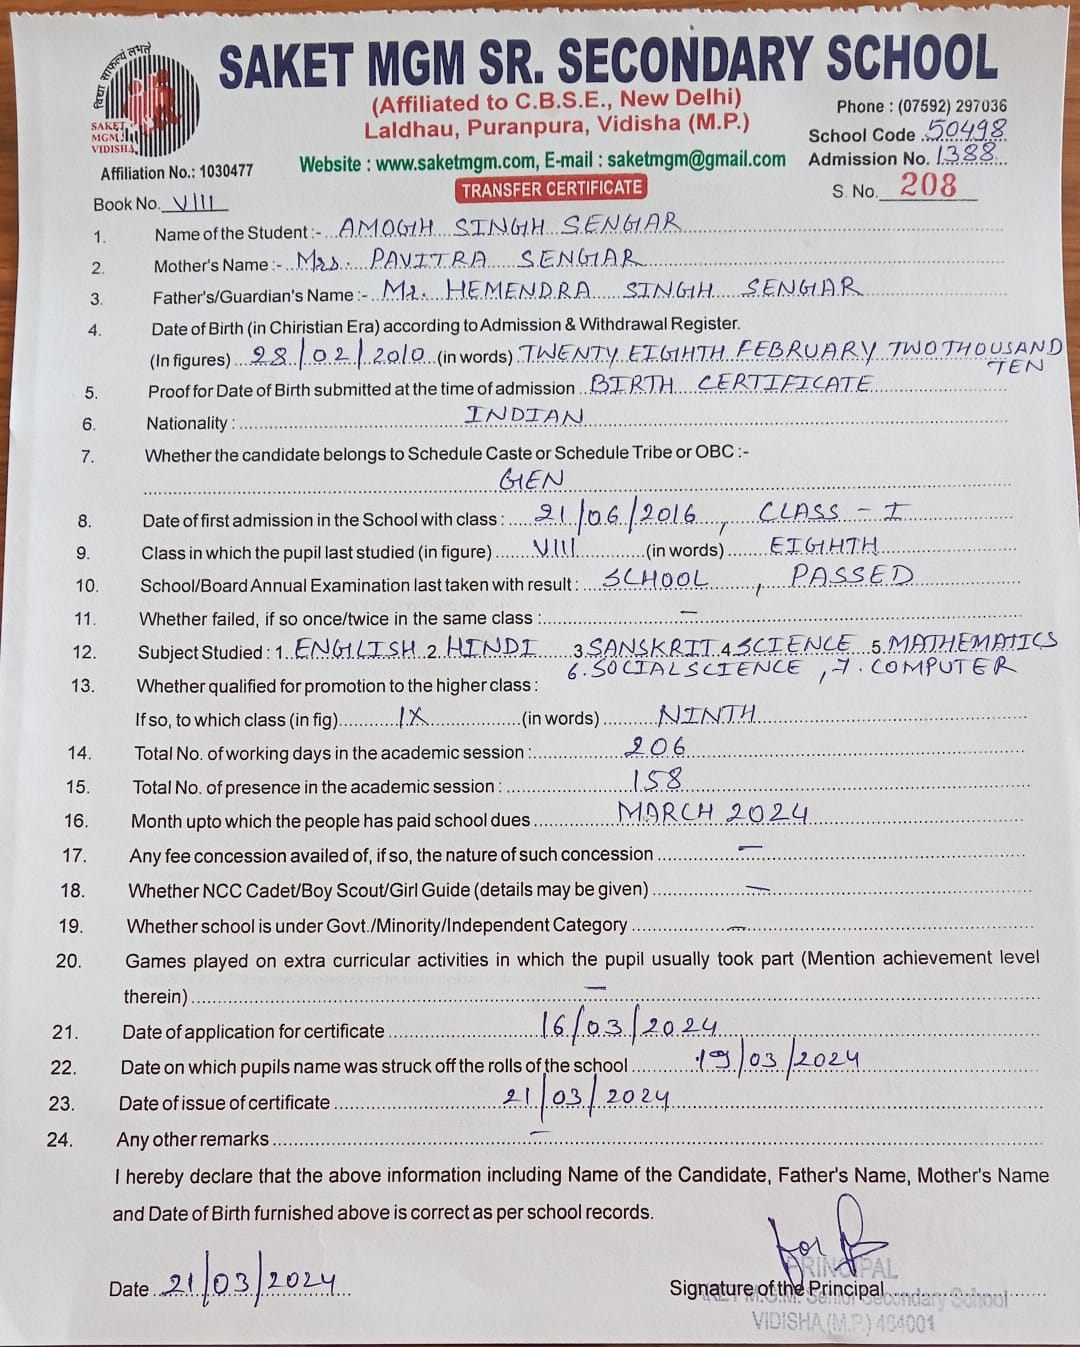 विद्या साफल्यं लभते
SAKET
MGM
VIDISHA
SAKET MGM SR. SECONDARY SCHOOL
(Affiliated to C.B.S.E., New Delhi)
Laldhau, Puranpura, Vidisha (M.P.)
Phone : (07592) 297036
School Code 50498
Affiliation No.: 1030477
Website : www.saketmgm.com, E-mail : saketmgm@gmail.com
Admission No. 1388
TRANSFER CERTIFICATE
Book No. VIII
S. No. 208
1. Name of the Student :- AMOGH SINGH SENGAR
2. Mother's Name :- Mrs. PAVITRA SENGAR
3. Father's/Guardian's Name :- Mr. HEMENDRA SINGH SENGAR
4. Date of Birth (in Chiristian Era) according to Admission & Withdrawal Register.
(In figures) 28/02/2010 (in words) TWENTY EIGHTH FEBRUARY TWO THOUSAND
TEN
5. Proof for Date of Birth submitted at the time of admission BIRTH CERTIFICATE
6. Nationality : INDIAN
7. Whether the candidate belongs to Schedule Caste or Schedule Tribe or OBC :-
GEN
8. Date of first admission in the School with class : 21/06/2016, CLASS - I
9. Class in which the pupil last studied (in figure) VIII (in words) EIGHTH
10. School/Board Annual Examination last taken with result : SCHOOL, PASSED
11. Whether failed, if so once/twice in the same class : -
12. Subject Studied : 1. ENGLISH 2. HINDI 3. SANSKRIT 4. SCIENCE 5. MATHEMATICS
6. SOCIAL SCIENCE, 7. COMPUTER
13. Whether qualified for promotion to the higher class :
If so, to which class (in fig) IX (in words) NINTH
14. Total No. of working days in the academic session : 206
15. Total No. of presence in the academic session : 158
16. Month upto which the people has paid school dues MARCH 2024
17. Any fee concession availed of, if so, the nature of such concession -
18. Whether NCC Cadet/Boy Scout/Girl Guide (details may be given) -
19. Whether school is under Govt./Minority/Independent Category -
20. Games played on extra curricular activities in which the pupil usually took part (Mention achievement level
therein) -
21. Date of application for certificate 16/03/2024
22. Date on which pupils name was struck off the rolls of the school 19/03/2024
23. Date of issue of certificate 21/03/2024
24. Any other remarks -
I hereby declare that the above information including Name of the Candidate, Father's Name, Mother's Name
and Date of Birth furnished above is correct as per school records.
for
PRINCIPAL
Date 21/03/2024
Signature of the Principal
M.G.M. Senior Secondary School
VIDISHA (M.P.) 464001